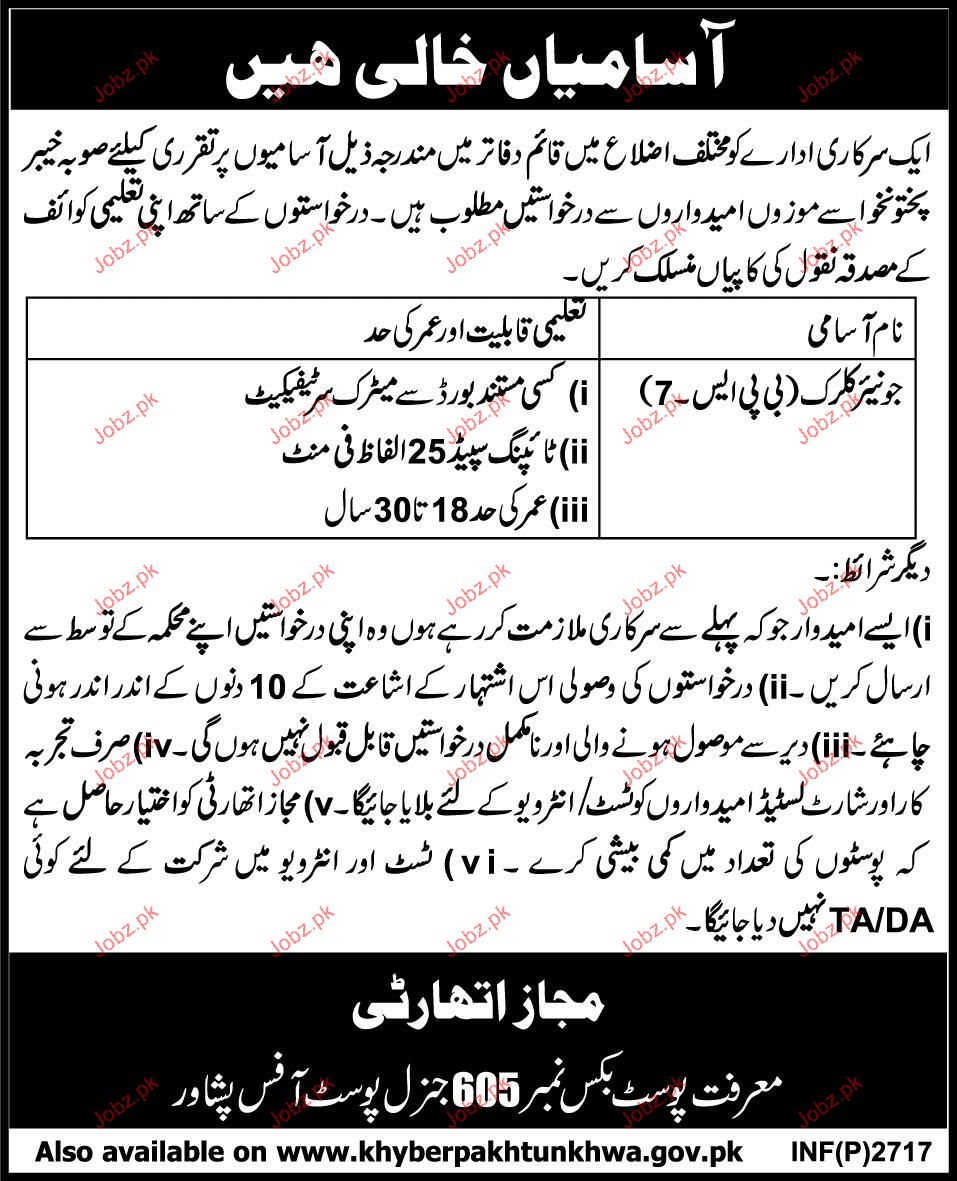 آسامیاں خالی ھیں
ایک سرکاری ادارے کو مختلف اضلاع میں قائم دفاتر میں مندرجہ ذیل آسامیوں پر تقرری کیلئے صوبہ خیبر
پختونخوا سے موزوں امیدواروں سے درخواستیں مطلوب ہیں۔ درخواستوں کے ساتھ اپنی تعلیمی کوائف
کے مصدقہ نقول کی کاپیاں منسلک کریں۔
نام آسامی
تعلیمی قابلیت اور عمر کی حد
جونیئر کلرک (بی پی ایس۔7)
i) کسی مستند بورڈ سے میٹرک سرٹیفیکیٹ
ii) ٹائپنگ سپیڈ 25 الفاظ فی منٹ
iii) عمر کی حد 18 تا 30 سال
دیگر شرائط:۔
i) ایسے امیدوار جو کہ پہلے سے سرکاری ملازمت کر رہے ہوں وہ اپنی درخواستیں اپنے محکمہ کے توسط سے
ارسال کریں۔ ii) درخواستوں کی وصولی اس اشتہار کے اشاعت کے 10 دنوں کے اندر اندر ہونی
چاہئے۔ iii) دیر سے موصول ہونے والی اور نامکمل درخواستیں قابل قبول نہیں ہوں گی۔ iv) صرف تجربہ
کار اور شارٹ لسٹیڈ امیدواروں کو ٹسٹ/انٹرویو کے لئے بلایا جائیگا۔ v) مجاز اتھارٹی کو اختیار حاصل ہے
کہ پوسٹوں کی تعداد میں کمی بیشی کرے ۔ vi) ٹسٹ اور انٹرویو میں شرکت کے لئے کوئی
TA/DA نہیں دیا جائیگا۔
مجاز اتھارٹی
معرفت پوسٹ بکس نمبر 605 جنرل پوسٹ آفس پشاور
Also available on www.khyberpakhtunkhwa.gov.pk INF(P)2717
Jobz.pk